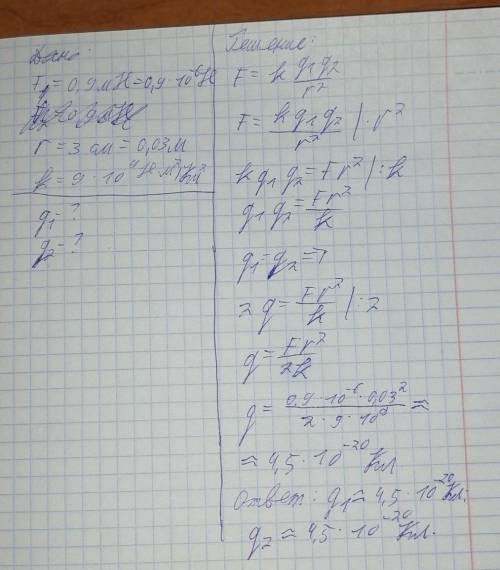 Дано:
F = 0,9 мН = 0,9 · 10⁻⁶ Н
r = 3 см = 0,03 м
k = 9 · 10⁹ Н · м²/Кл²
q₁ = ?
q₂ = ?
Решение:
F = k q₁q₂/r²
F = k q₁ q₂/r² | · r²
k q₁ q₂ = Fr² | : k
q₁ q₂ = Fr²/k
q₁ = q₂ =>
2q = Fr²/k | : 2
q = Fr²/2k
q = 0,9 · 10⁻⁶ · 0,03²/2 · 9 · 10⁹ ≈
≈ 4,5 · 10⁻²⁰ Кл
Ответ: q₁ ≈ 4,5 · 10⁻²⁰ Кл;
q₂ ≈ 4,5 · 10⁻²⁰ Кл.